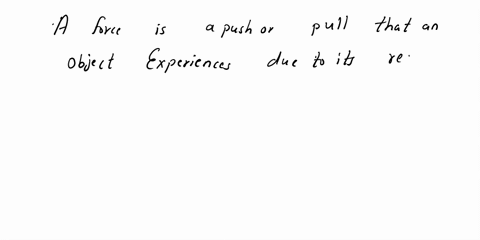 A force is a push or pull that an
object Experiences due to its re